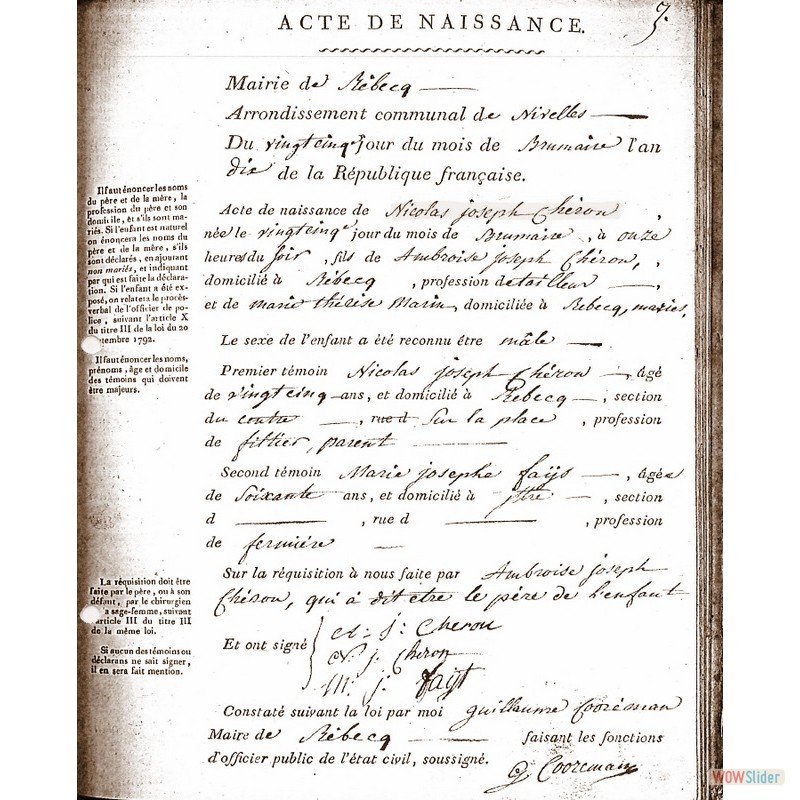 ACTE DE NAISSANCE.
3.
Mairie de Rébecq
Arrondissement communal de Nivelles
Du vingtcinqe jour du mois de Brumaire l'an
dix de la République française.
Acte de naissance de Nicolas joseph Chéron ,
née le vingtcinqe jour du mois de Brumaire , à onze
heures du soir , fils de Ambroise joseph Chéron, ,
domicilié à Rébecq , profession de tailleur ,
et de marie thérèse Marin , domiciliée à Rebecq, mariés,
Le sexe de l'enfant a été reconnu être mâle
Premier témoin Nicolas joseph Chéron , âgé
de vingtcinq ans, et domicilié à Rebecq , section
du centre , rue d sur la place , profession
de fillier, parent
Second témoin Marie josephe fayt , âgée
de Soixante ans, et domicilié à yttre , section
d , rue d , profession
de fermière
Sur la réquisition à nous faite par Ambroise joseph
Chéron, qui à dit etre le père de l'enfant
Et ont signé
A: j: Cheron
N. j. Cheron
M: j: fayt
Constaté suivant la loi par moi guillaume Cooréman
Maire de Rébecq faisant les fonctions
d'officier public de l'état civil, soussigné.
g Cooreman
Il faut énoncer les noms
du père et de la mère, la
profession du père et son
domicile, et s'ils sont ma-
riés. Si l'enfant est naturel
on énoncera les noms du
père et de la mère, s'ils
sont déclarés, en ajoutant
non mariés, et indiquant
par qui est faite la déclara-
tion. Si l'enfant a été ex-
posé, on relatera le procès-
verbal de l'officier de po-
lice, suivant l'article X
du titre III de la loi du 20
septembre 1792.
Il faut énoncer les noms,
prénoms, âge et domicile
des témoins qui doivent
être majeurs.
La réquisition doit être
faite par le père, ou à son
défaut, par le chirurgien
ou sage-femme, suivant
l'article III du titre III
de la même loi.
Si aucun des témoins ou
déclarans ne sait signer,
il en sera fait mention.
WOWSlider